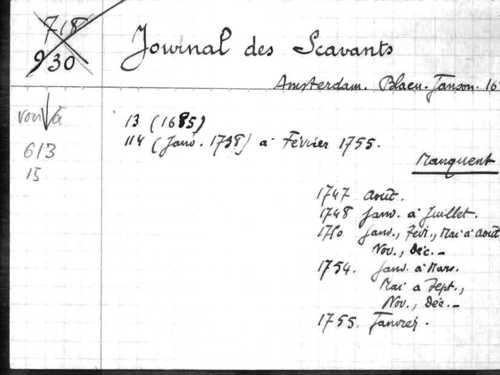 718
930
Journal des Scavants
Amsterdam. Blaeu. Janson. 16
voir à
613
15
13 (1685)
114 (Janv. 1738) à Février 1755.
Manquent
1747 Août.
1748 Janv. à Juillet.
1750 Janv., Févr., Mai à Août
Nov., Déc.-
1754. Janv. à Mars.
Mai à Sept.,
Nov., Déc.-
1755. Janvier.